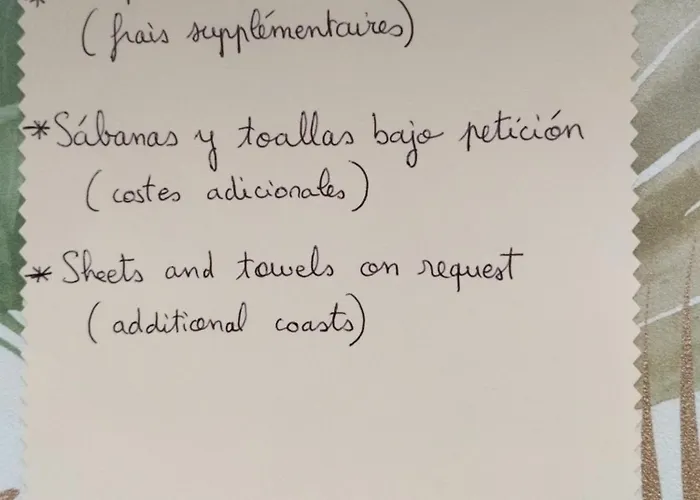 (frais supplémentaires)
*Sábanas y toallas bajo petición
(costes adicionales)
* Sheets and towels on request
(additional coasts)